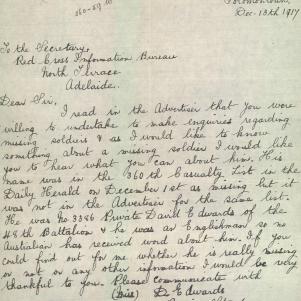 Dec. 13th 1917
To the Secretary
Red Cross Information Bureau
North Terrace
Adelaide.
Dear Sir,
I read in the Advertiser that you were
willing to undertake to make inquiries regarding
missing soldiers & as I would like to know
something about a missing soldier I would like
you to hear what you can about him. His
name was in the 360th Casualty List in the
Daily Herald on December 1st as missing but it
was not in the Advertiser for the same list.
He was no 3386 Private David Edwards of the
48th Battalion & he was an Englishman so no
Australian has received word about him. If you
could find out for me whether he is really missing
or not or any other information I would be very
thankful to you. Please communicate with
(Miss) Edwards